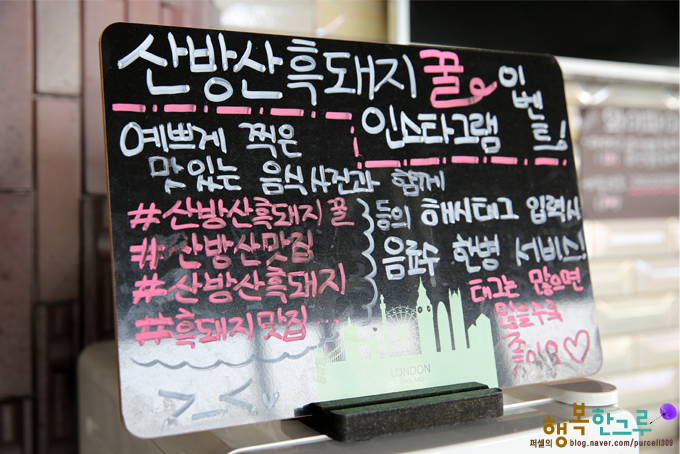 산방산흑돼지 꿀 이벤트!
인스타그램
예쁘게 찍은
맛있는 음식사진과 함께
#산방산흑돼지꿀
#산방산맛집
#산방산흑돼지
#흑돼지맛집...
등의 해시태그 입력시
음료수 한병 서비스!
태그는 많으면
많을수록
좋아요♡
LONDON
행복한그루
퍼셀의 blog.naver.com/purcell309